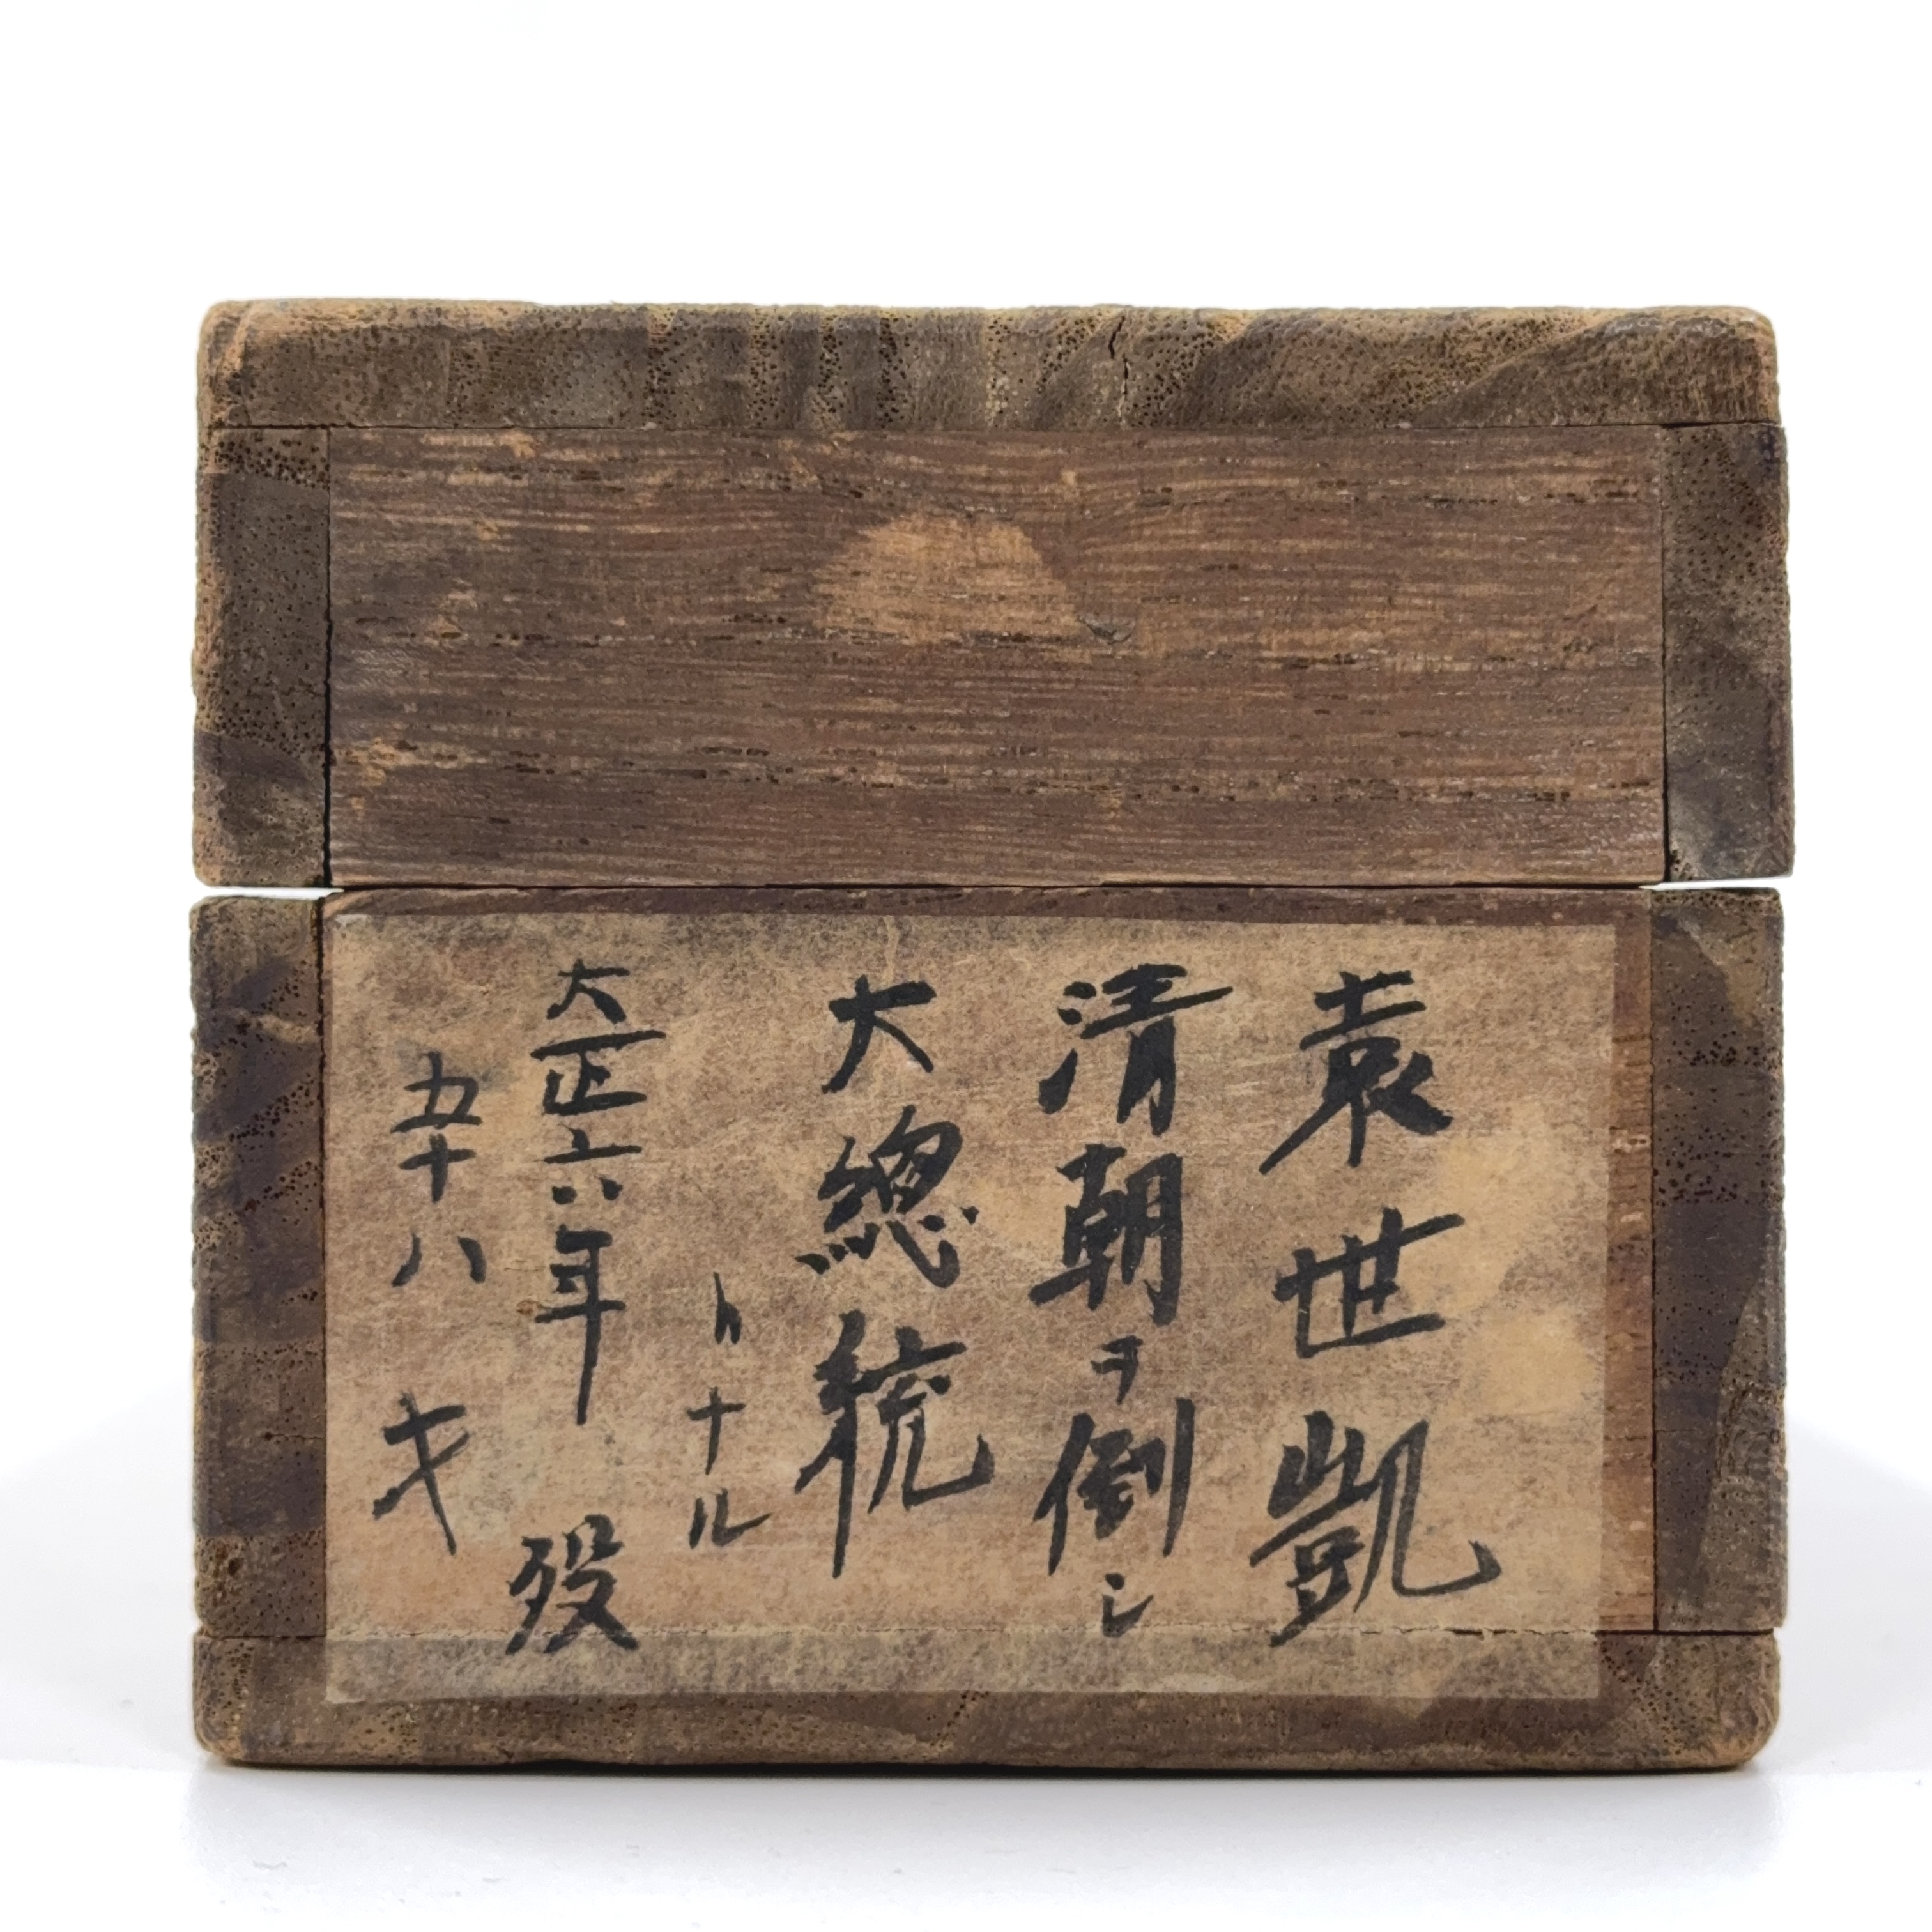 袁世凱
清朝ヲ倒シ
大總統
トナル
大正六年 歿
五十八才